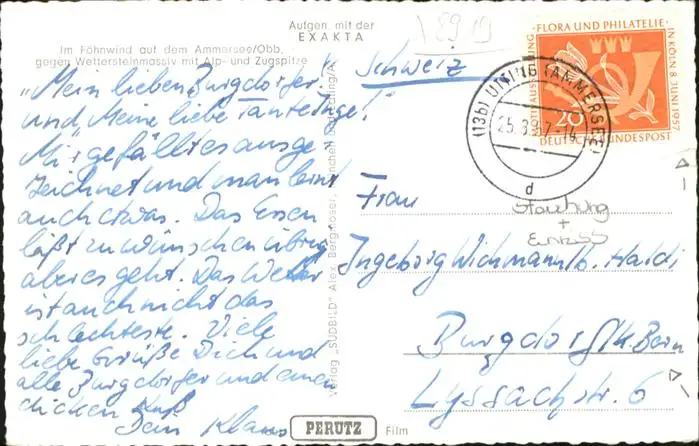 Aufgen. mit der
EXAKTA
Im Föhnwind auf dem Ammersee/Obb.
gegen Wettersteinmassiv mit Alp- und Zugspitze
"Mein lieben Burgdorfer!
und "Meine liebe Tante Inge!"
Mir gefällt es ausge-
zeichnet und man lernt
auch etwas. Das Essen
läßt zu wünschen übrig
aber es geht. Das Wetter
ist auch nicht das
schlechteste. Viele
liebe Grüße Dich und
alle Burgdorfer und einen
dicken Kuß
Dein Klaus
Verlag „SÜDBILD" Alex. Bergmoser, München
Schweiz
FLORA UND PHILATELIE
IN KÖLN 8. JUNI 1957
20
DEUTSCHE BUNDESPOST
(13b) UTTING (AMMERSEE)
d
Frau
Stauchung
+
Ingeborg Wichmann b. Haldi
Burgdorf/K. Bern
Lyssachstr. 6
PERUTZ Film